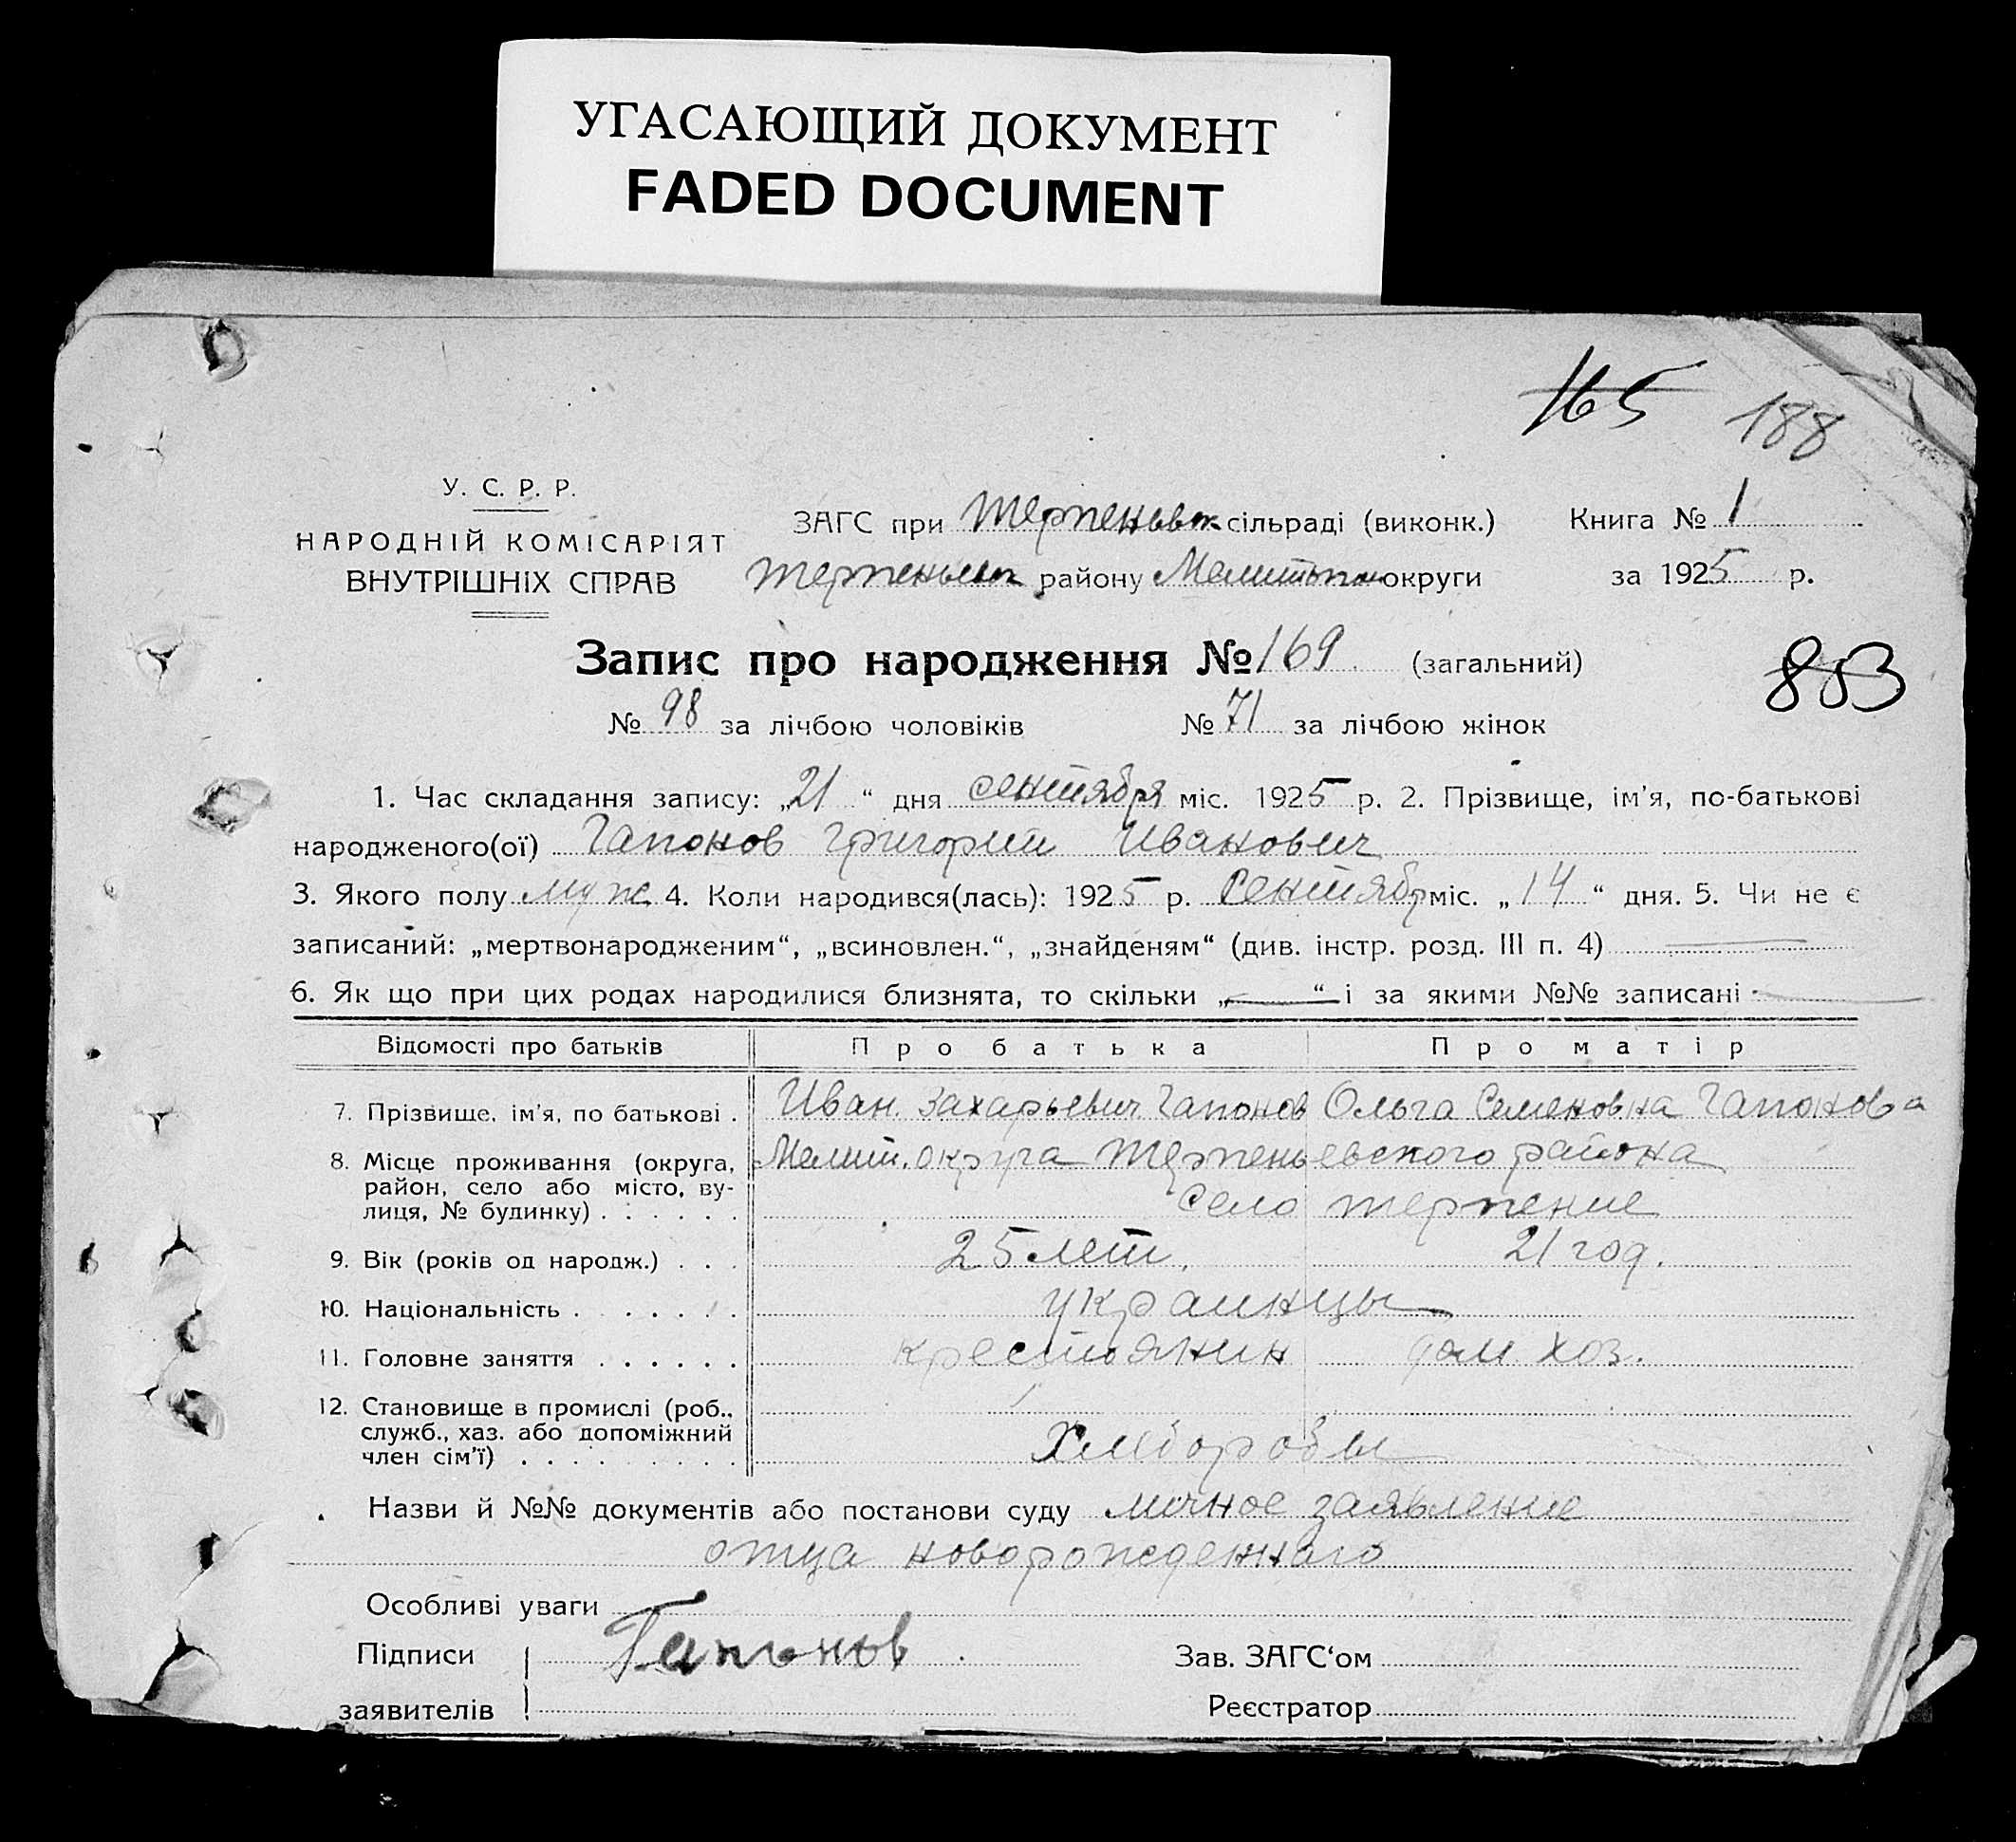 УГАСАЮЩИЙ ДОКУМЕНТ
FADED DOCUMENT
165 188
У. С. Р. Р.
НАРОДНІЙ КОМІСАРІЯТ
ВНУТРІШНІХ СПРАВ
ЗАГС при Терпеньевск сільраді (виконк.) Книга № 1
Терпеньевск району Мелитопол округи за 1925 р.
Запис про народження № 169 (загальний)
883
№ 98 за лічбою чоловіків № 71 за лічбою жінок
1. Час складання запису: „21“ дня сентября міс. 1925 р. 2. Прізвище, ім'я, по-батькові
народженого(ої) Гапонов Григорий Иванович
3. Якого полу муж. 4. Коли народився(лась): 1925 р. Сентябр міс. „14“ дня. 5. Чи не є
записаний: „мертвонародженим“, „всиновлен.“, „знайденям“ (див. інстр. розд. III п. 4) —
6. Як що при цих родах народилися близнята, то скільки „—“ і за якими №№ записані —
Відомості про батьків Про батька Про матір
7. Прізвище, ім'я, по батькові . Иван Захарьевич Гапонов Ольга Семеновна Гапонова
8. Місце проживання (округа, Мелит. округа Терпеньевского района
район, село або місто, ву-
лиця, № будинку) . . . . . . Село Терпение
9. Вік (років од народж.) . . . 25 лет. 21 год.
10. Національність . . . . . . украинцы
11. Головне заняття . . . . . . крестьянин дом. хоз.
12. Становище в промислі (роб.,
служб., хаз. або допоміжний Хлеборобы
член сім'ї) . . . . . . . . .
Назви й №№ документів або постанови суду личное заявление
отца новорожденнаго
Особливі уваги
Підписи Гапонов Зав. ЗАГС'ом
заявителів Реєстратор